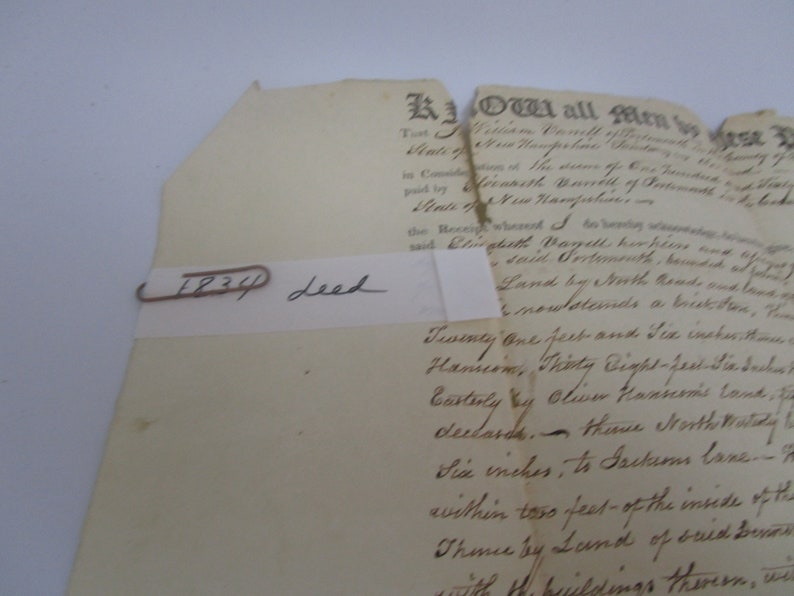 KNOW all Men by these
That I William Varrell of Portsmouth in the County of
State of New Hampshire
in Consideration of the sum of One hundred and
paid by Elizabeth Varrell of Portsmouth in the
State of New Hampshire. —
the Receipt whereof I do hereby
said Elizabeth Varrell her heirs and assigns
said Portsmouth, bounded as
Land by North Road, and land
1834 deed
now stands a brick
Twenty One feet and Six inches, thence
Hanscom, Thirty Eight feet Six Inches
Easterly by Oliver Hanscom's Land,
deceased. — thence North Westerly
Six inches, to Jacksons lane —
within two feet of the inside of the
Thence by Land of said
with the buildings thereon,